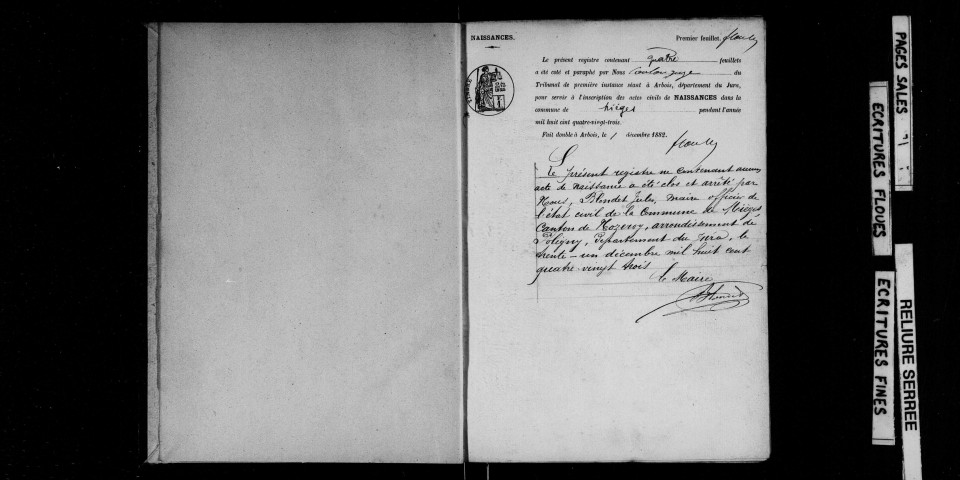 NAISSANCES.
Premier feuillet.
Le présent registre contenant quatre feuillets
a été coté et paraphé par Nous du
Tribunal de première instance séant à Arbois, département du Jura,
pour servir à l'inscription des actes civils de NAISSANCES dans la
commune de Mièges pendant l'année
mil huit cent quatre-vingt-trois.
Fait double à Arbois, le 1 décembre 1882.
Le présent registre ne contenant aucun
acte de naissance a été clos et arrêté par
Nous, Blondet Jules, maire officier de
l'état civil de la Commune de Mièges
Canton de Nozeroy, arrondissement de
Poligny, Département du Jura, le
trente-un décembre mil huit cent
quatre-vingt trois
le Maire
PAGES SALES
ECRITURES FLOUES
ECRITURES FINES
RELIURE SERREE